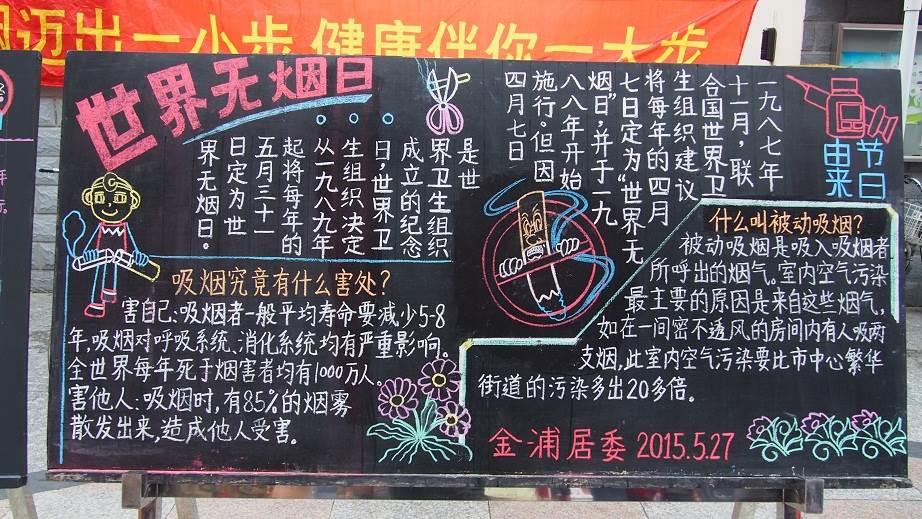 迈出一小步 健康伴你一大步
世界无烟日
节日
由来
一九八七年
十一月，联
合国世界卫
生组织建议
将每年的四月
七日定为“世界无
烟日”，并于一九
八八年开始
施行。但因
四月七日
是世
界卫生组织
成立的纪念
日，世界卫
生组织决定
从一九八九年
起将每年的
五月三十一
日定为世
界无烟日。
吸烟究竟有什么害处？
害自己：吸烟者一般平均寿命要减少5-8
年，吸烟对呼吸系统、消化系统均有严重影响。
全世界每年死于烟害者均有1000万人。
害他人：吸烟时，有85%的烟雾
散发出来，造成他人受害。
什么叫被动吸烟？
被动吸烟是吸入吸烟者
所呼出的烟气。室内空气污染
最主要的原因是来自这些烟气，
如在一间密不透风的房间内有人吸两
支烟，此室内空气污染要比市中心繁华
街道的污染多出20多倍。
金浦居委 2015.5.27